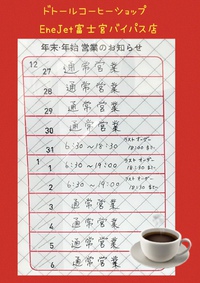 ドトールコーヒーショップ
EneJet富士宮バイパス店
年末・年始 営業のお知らせ
12/27 通常営業
28 通常営業
29 通常営業
30 通常営業
31 6:30～18:30 ラストオーダー 18:00まで
1/1 6:30～19:00 ラストオーダー 18:30まで
2 6:30～19:00 ラストオーダー 18:30まで
3 通常営業
4 通常営業
5 通常営業
6 通常営業